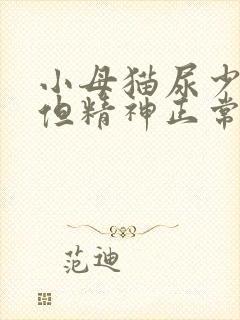 小母猫尿少
但精神正常
范迪